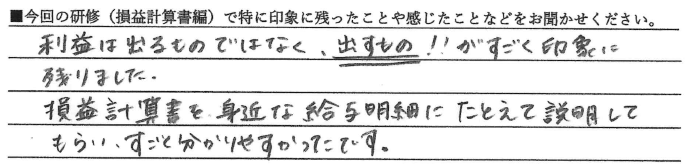 ■今回の研修（損益計算書編）で特に印象に残ったことや感じたことなどをお聞かせください。
利益は出るものではなく、出すもの!!がすごく印象に
残りました.
損益計算書を身近な給与明細にたとえて説明して
もらい、すごと分かりやすかったです。